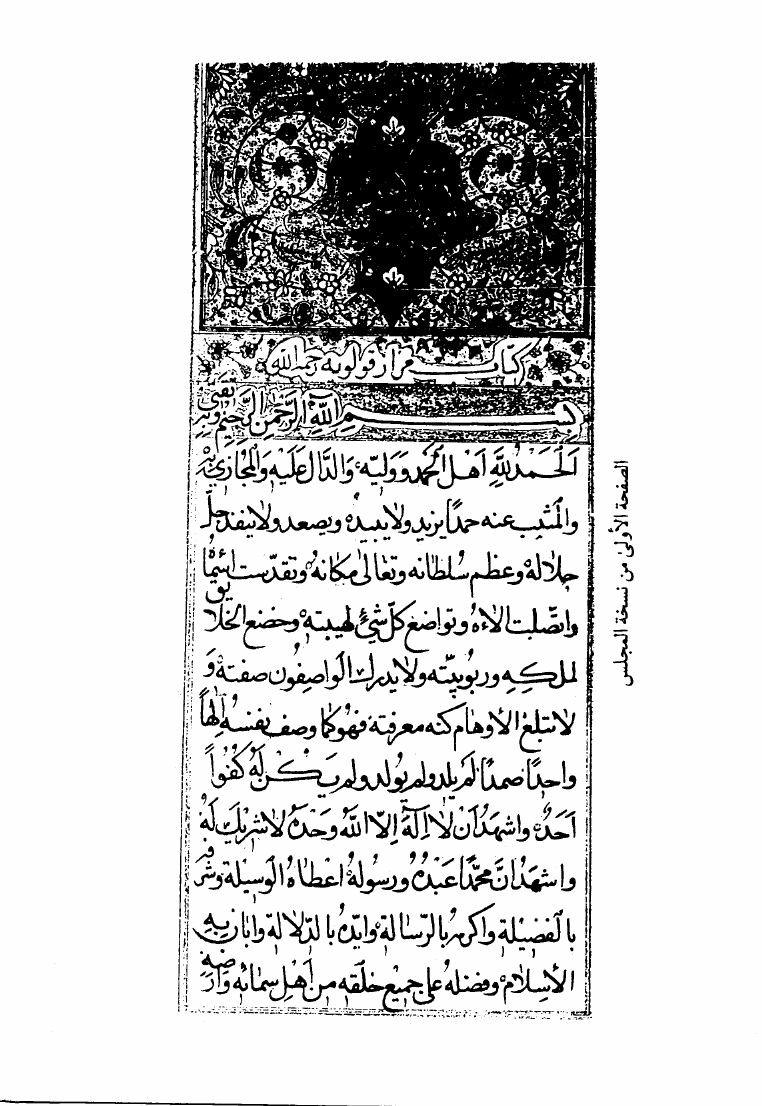 كتاب مزار قولويه رحمه الله
بسم الله الرحمن الرحيم وبه ثقتي
اَلْحَمْدُ لِلَّهِ اَهْلِ الْحَمْدِ وَوَلِيِّهِ وَالدَّالِّ عَلَيْهِ وَالْمُجَازِي بِهِ
والمثيب عنه حمدًا يزيد ولا يبيد ويصعد ولا ينفد جلّ
جلاله وعظم سُلطانه وتعالى مكانه وتقدّست اسماؤه
واتّصلت الاءهُ وتواضع كلّ شيءٍ لهيبته وخضع الخلايق
لملكه وربوبيّته ولا يدرك الواصفون صفته و
لا تبلغ الأوهام كنه معرفته فهو كما وصف نفسه الهاً
واحدًا صمدًا لم يلد ولم يولد ولم يكن له كُفُواً
اَحَدٌ واشهد اَنْ لا اِلهَ اِلاّ اللّهُ وَحْدَهُ لا شريك لهُ
واشهد انّ محمّدًا عَبْدُهُ ورسولهُ اعْطاهُ الوَسِيلة وشرّفه
بالفَضِيْلة واكرمه بالرّسالة وايّدهُ بالدّلالة وابان بِهِ
الأسلام وفضله على جميع خلقه من اهل سمائه وارضه
الصفحة الأولى من نسخة المجلس